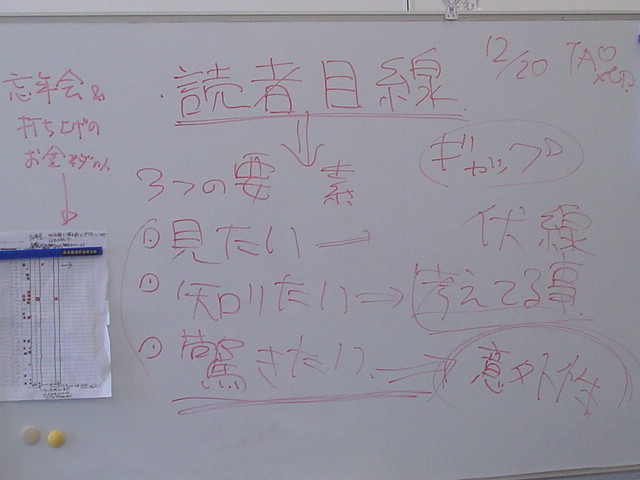 忘年会&
打ち上げの
お金
12/20 TAO
・読者目線
ギャップ
3つの要素
見たい → 伏線
知りたい ⇒ 考えてる事
驚きたい ⇒ 意外性